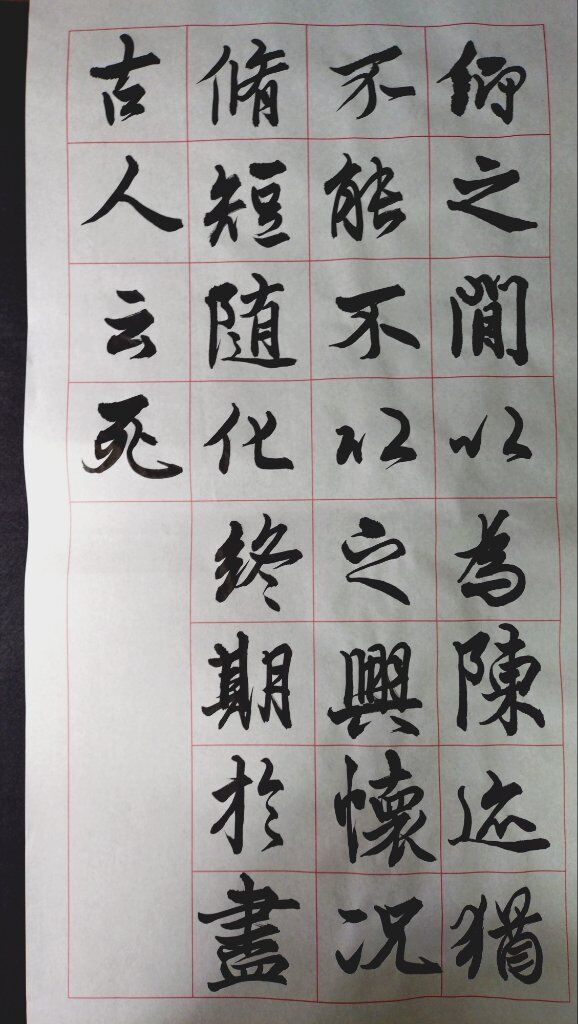 俯之閒以為陳迹猶
不能不以之興懷况
脩短随化終期於盡
古人云死